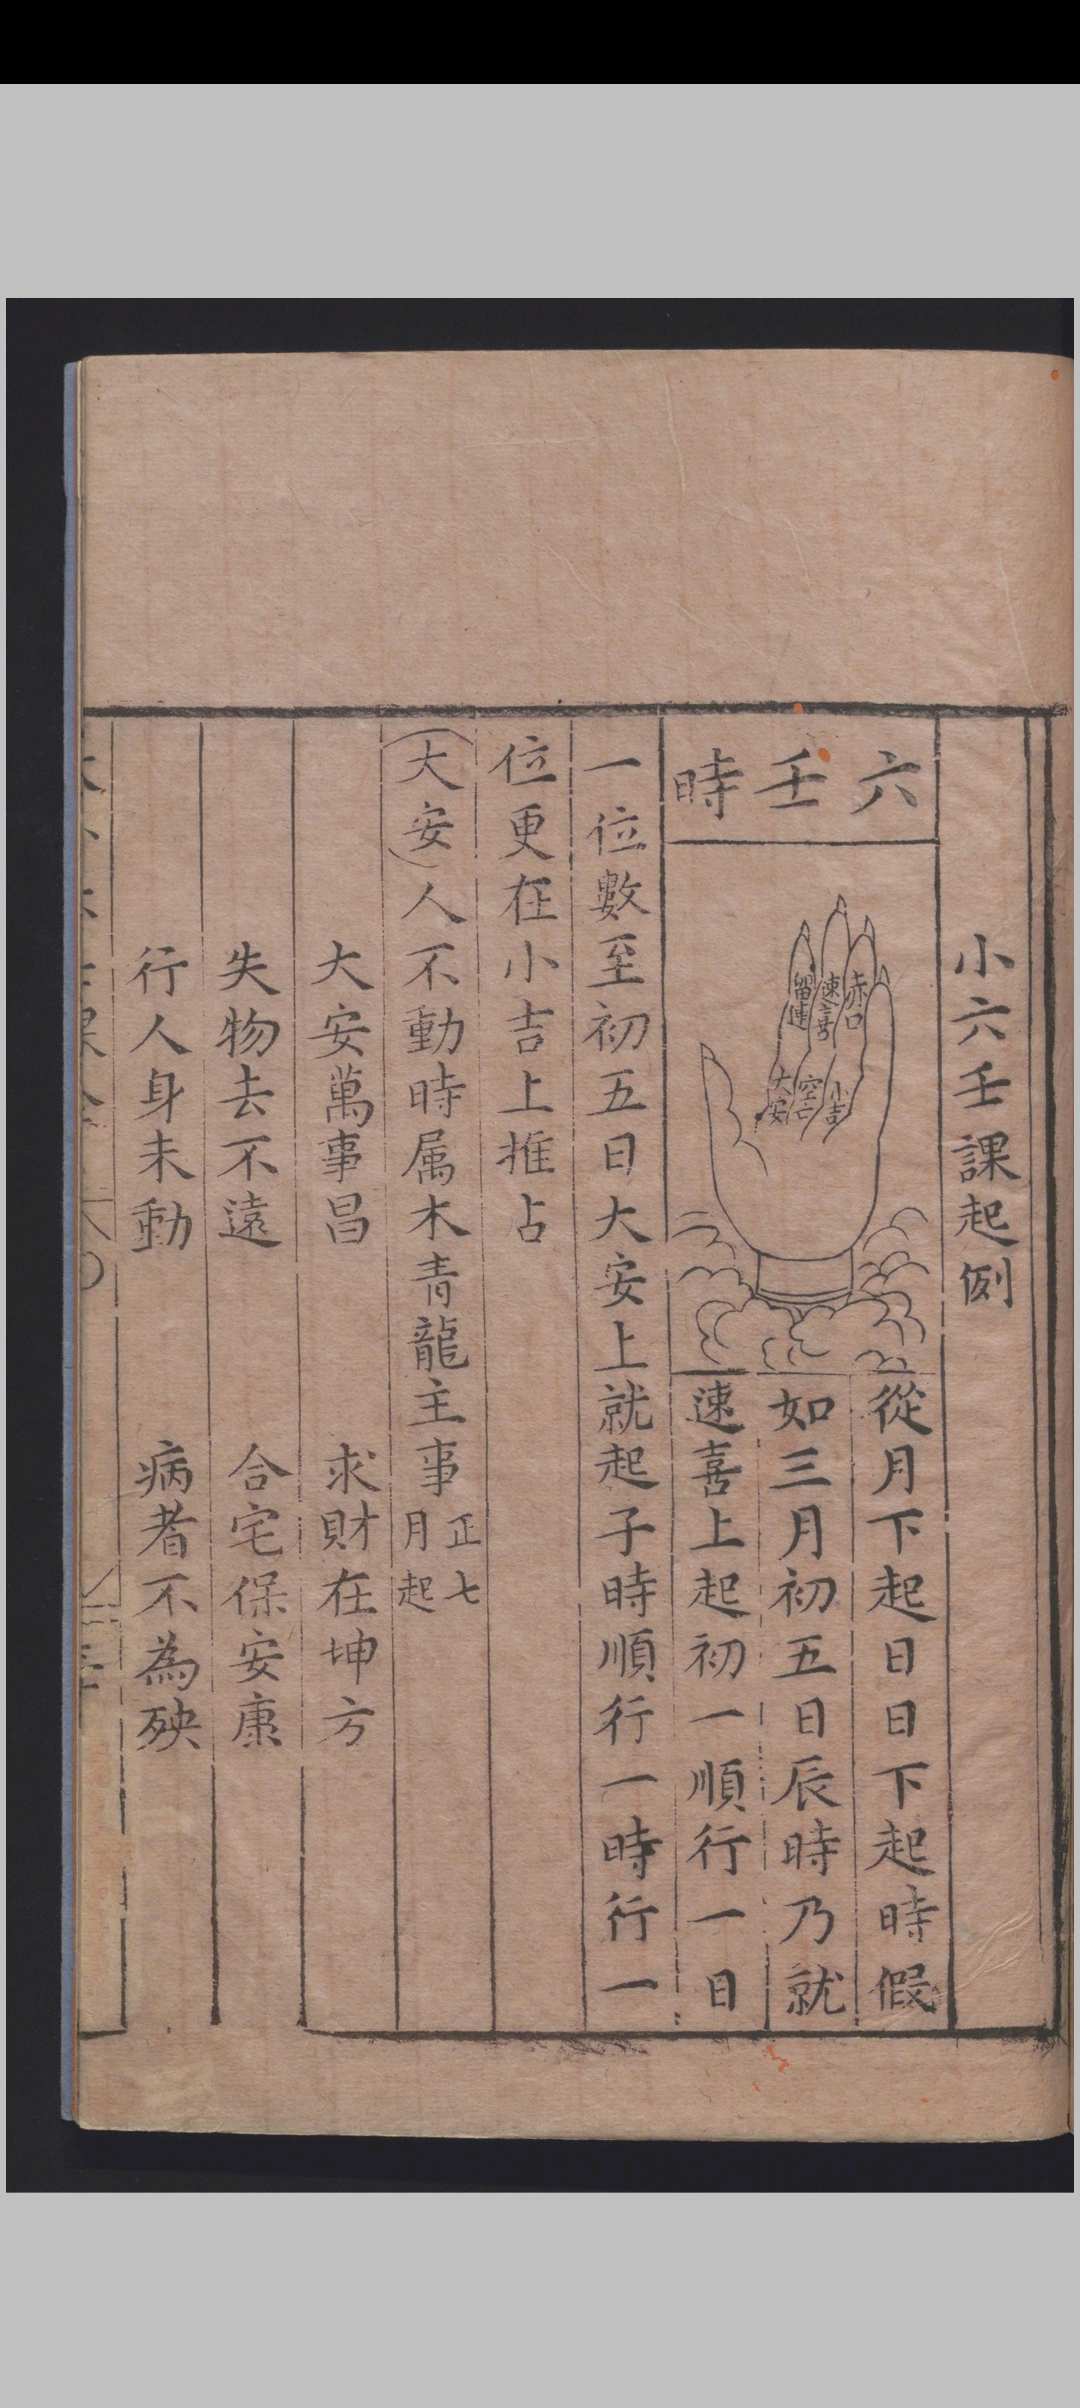 小六壬課起例
六壬時
留連
速喜
赤口
大安
空亡
小吉
從月下起日日下起時假
如三月初五日辰時乃就
速喜上起初一順行一日
一位數至初五日大安上就起子時順行一時行一
位更在小吉上推占
(大安)人不動時属木青龍主事正七月起
大安萬事昌 求財在坤方
失物去不遠 合宅保安康
行人身未動 病者不為殃